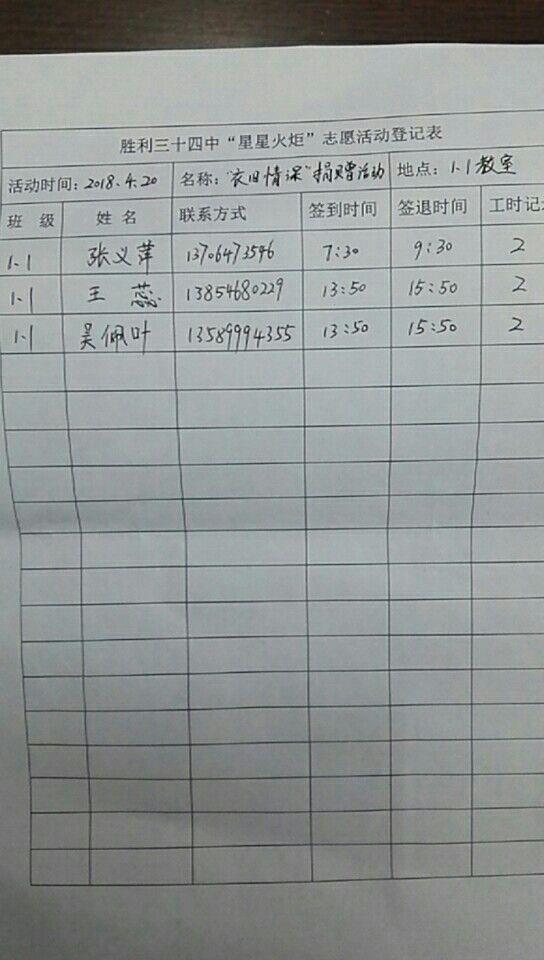 胜利三十四中“星星火炬”志愿活动登记表
活动时间：2018.4.20 名称：“衣旧情深”捐赠活动 地点：1.1教室
班 级 姓 名 联系方式 签到时间 签退时间 工时记
1.1 张义萍 13706473546 7:30 9:30 2
1.1 王 蕊 13854680229 13:50 15:50 2
1.1 吴佩叶 13589994355 13:50 15:50 2